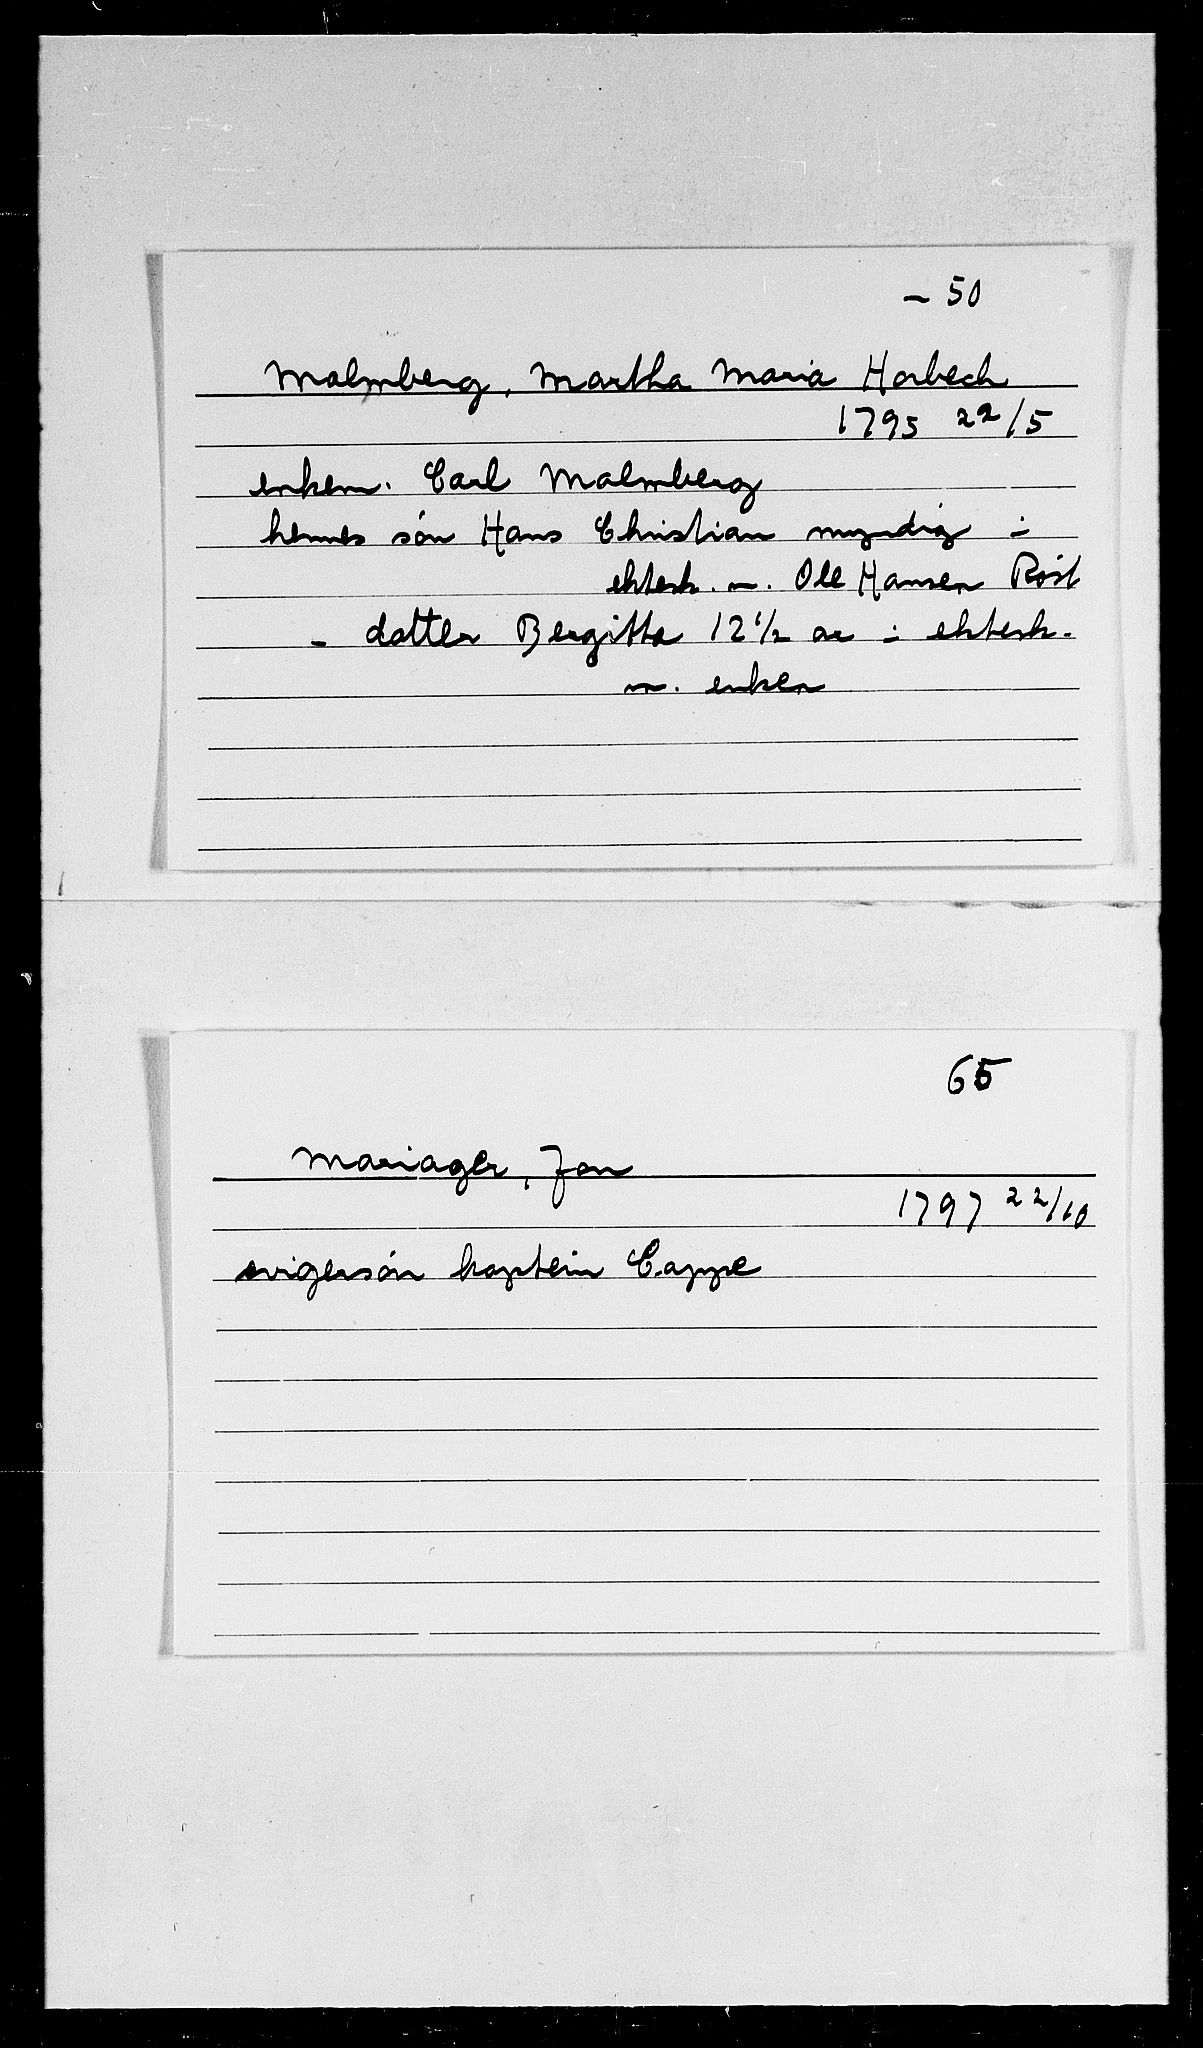 - 50
Malmberg, Martha Maria Horbech
1795 22/5
enkem. Carl Malmberg
hennes sön Hans Christian myndig i
ektesk. m. Ole Hansen Röst
- datter Bergitta 12 1/2 år i ektesk.
m. enken
65
Mariager, Jon
1797 22/10
svigersön kaptein Cappe